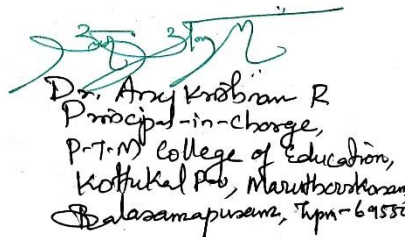 Dr. Any Krobran R
Principal-in-Charge,
P.T.M College of Education,
Kottukal P.O, Maruthoorkonam,
Balaramapuram, Tvpm-69550